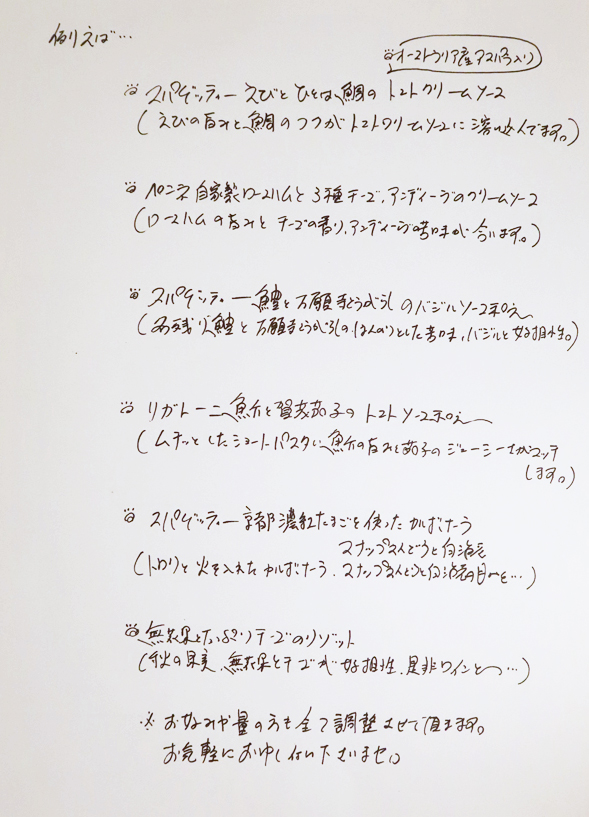 例えば…
オーストラリア産アスパラ入り
スパゲッティー えびと ひとは鯛の トマトクリームソース
(えびの旨みと、鯛のコツがトマトクリームソースに溶け込んでます。)
ペンネ 自家製ロースハムと3種チーズ、アンディーブのクリームソース
(ロースハムの旨みと チーズの香り、アンディーブの苦味が合います。)
スパゲッティー 鱧と万願寺とうがらしのバジルソース和え
(名残り鱧と万願寺とうがらしの、ほんのりとした苦味、バジルと好相性。)
リガトーニ 魚介と賀茂茄子の トマトソース和え
(ムチッとしたショートパスタに魚介の旨みと茄子のジューシーさがマッチ
します。)
スパゲッティー 京都濃紅たまごを使ったカルボナーラ
スナップえんどうと白海老
(トロリと火を入れたカルボナーラ、スナップえんどうと白海老の甘みを…)
無花果とたっぷりチーズのリゾット
(秋の果実、無花果とチーズが好相性、是非ワインと…)
※ お好みや量の方も全て調整させて頂きます。
お気軽にお申し付け下さいませ。